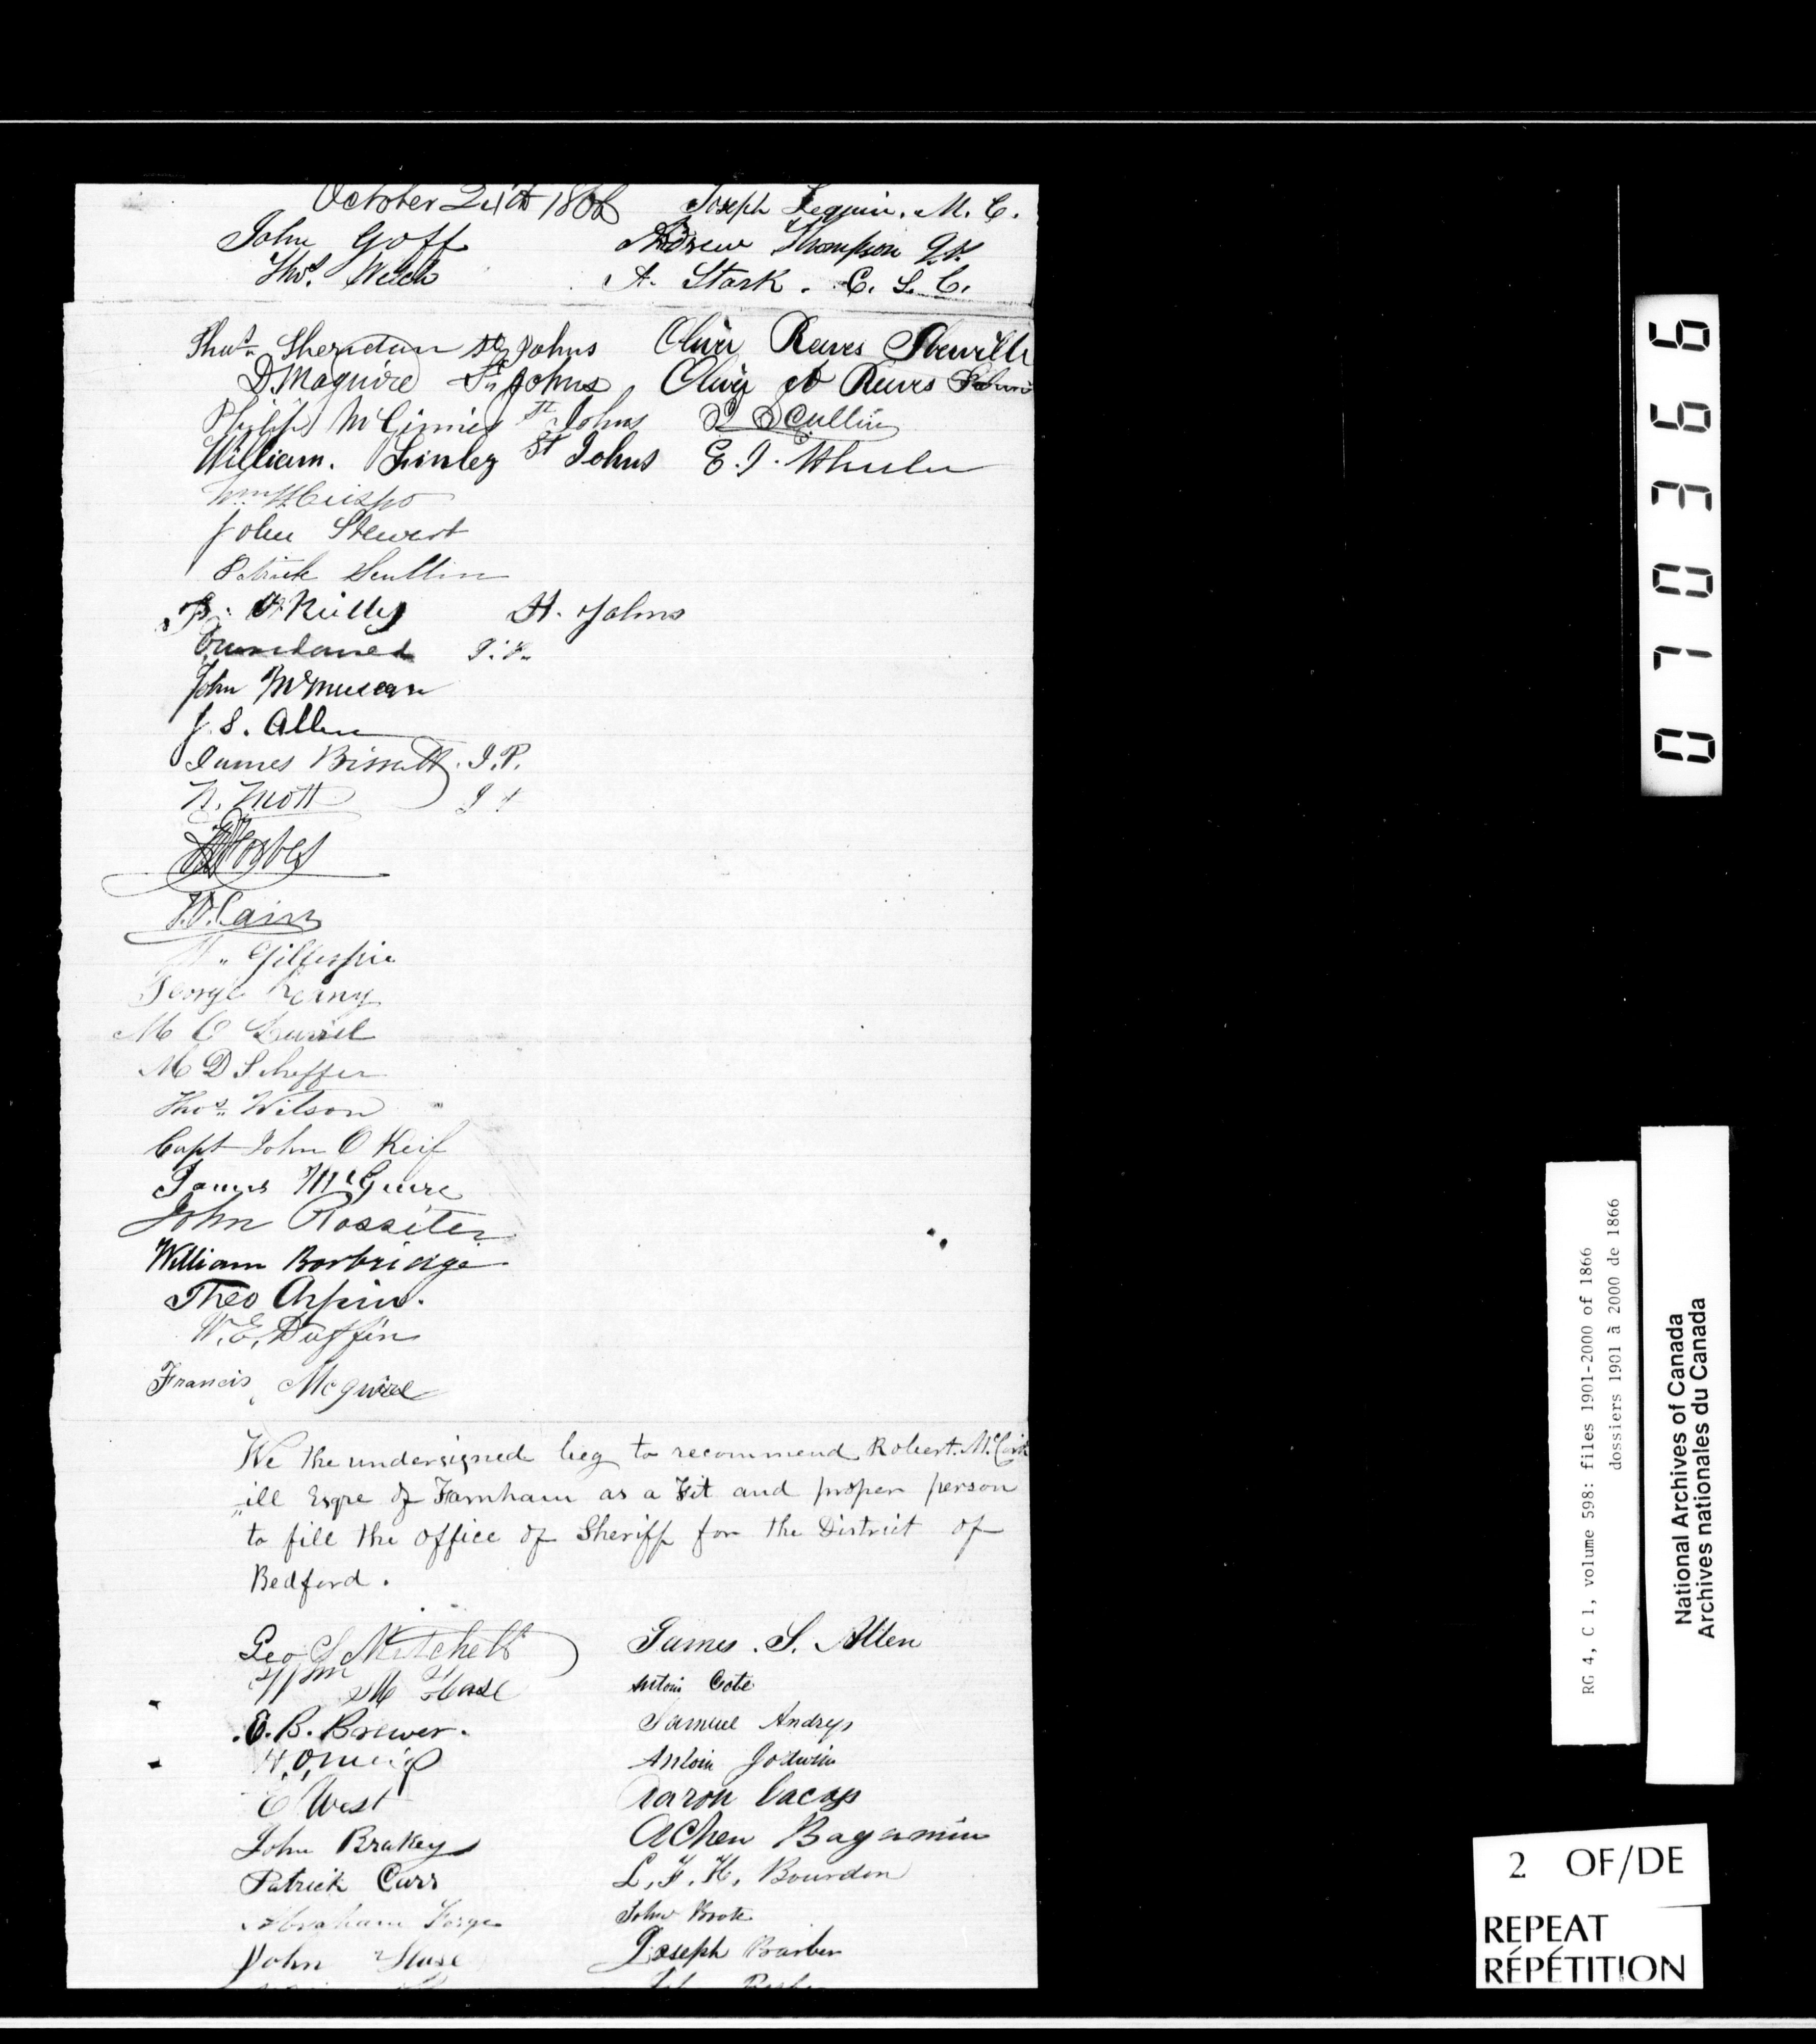 October 24th 1866 Joseph Lequin. M. C.
John Goff Andrew Thompson
Thos. Welch A. Stark. C. S. C.
Thos. Sheridan St Johns Oliver Reeves
D. Maguire St. Johns Oliver Reeves
Philip McGinnis St Johns Scullin
William. Finley St Johns E. J. Wheeler
Wm H Crispo
John Stewart
Patrick Scullin
O'Reilly St. Johns
John
J. S. Allen
James Bissett. J. P.
N. Mott
Forbes
Cain
M. Gillespie
George
M C
M D Scheffer
Thos. Wilson
Capt John O Keif
James McGuire
John Rossiter
William Borbridge
Theo Arpin.
W. E. Duffin
Francis Mcguire
We the undersigned beg to recommend Robert. McCork
"ill Esqre of Farnham as a Fit and proper person
to fill the office of Sheriff for the District of
Bedford.
Geo S Mitchell James. S. Allen
Wm Hase Antoin Cote
E. B. Brewer. Samuel Andrys
H. O. Meigs Antoin Jodwin
E West Aaron Cacays
John Brakey AChen Bagamin
Patrick Carr L. F. H. Bourdon
Abraham Forge John
John Hase Joseph Barber
070366
RG 4, C 1, volume 598: files 1901-2000 of 1866
dossiers 1901 à 2000 de 1866
National Archives of Canada
Archives nationales du Canada
2 OF/DE
REPEAT
RÉPÉTITION